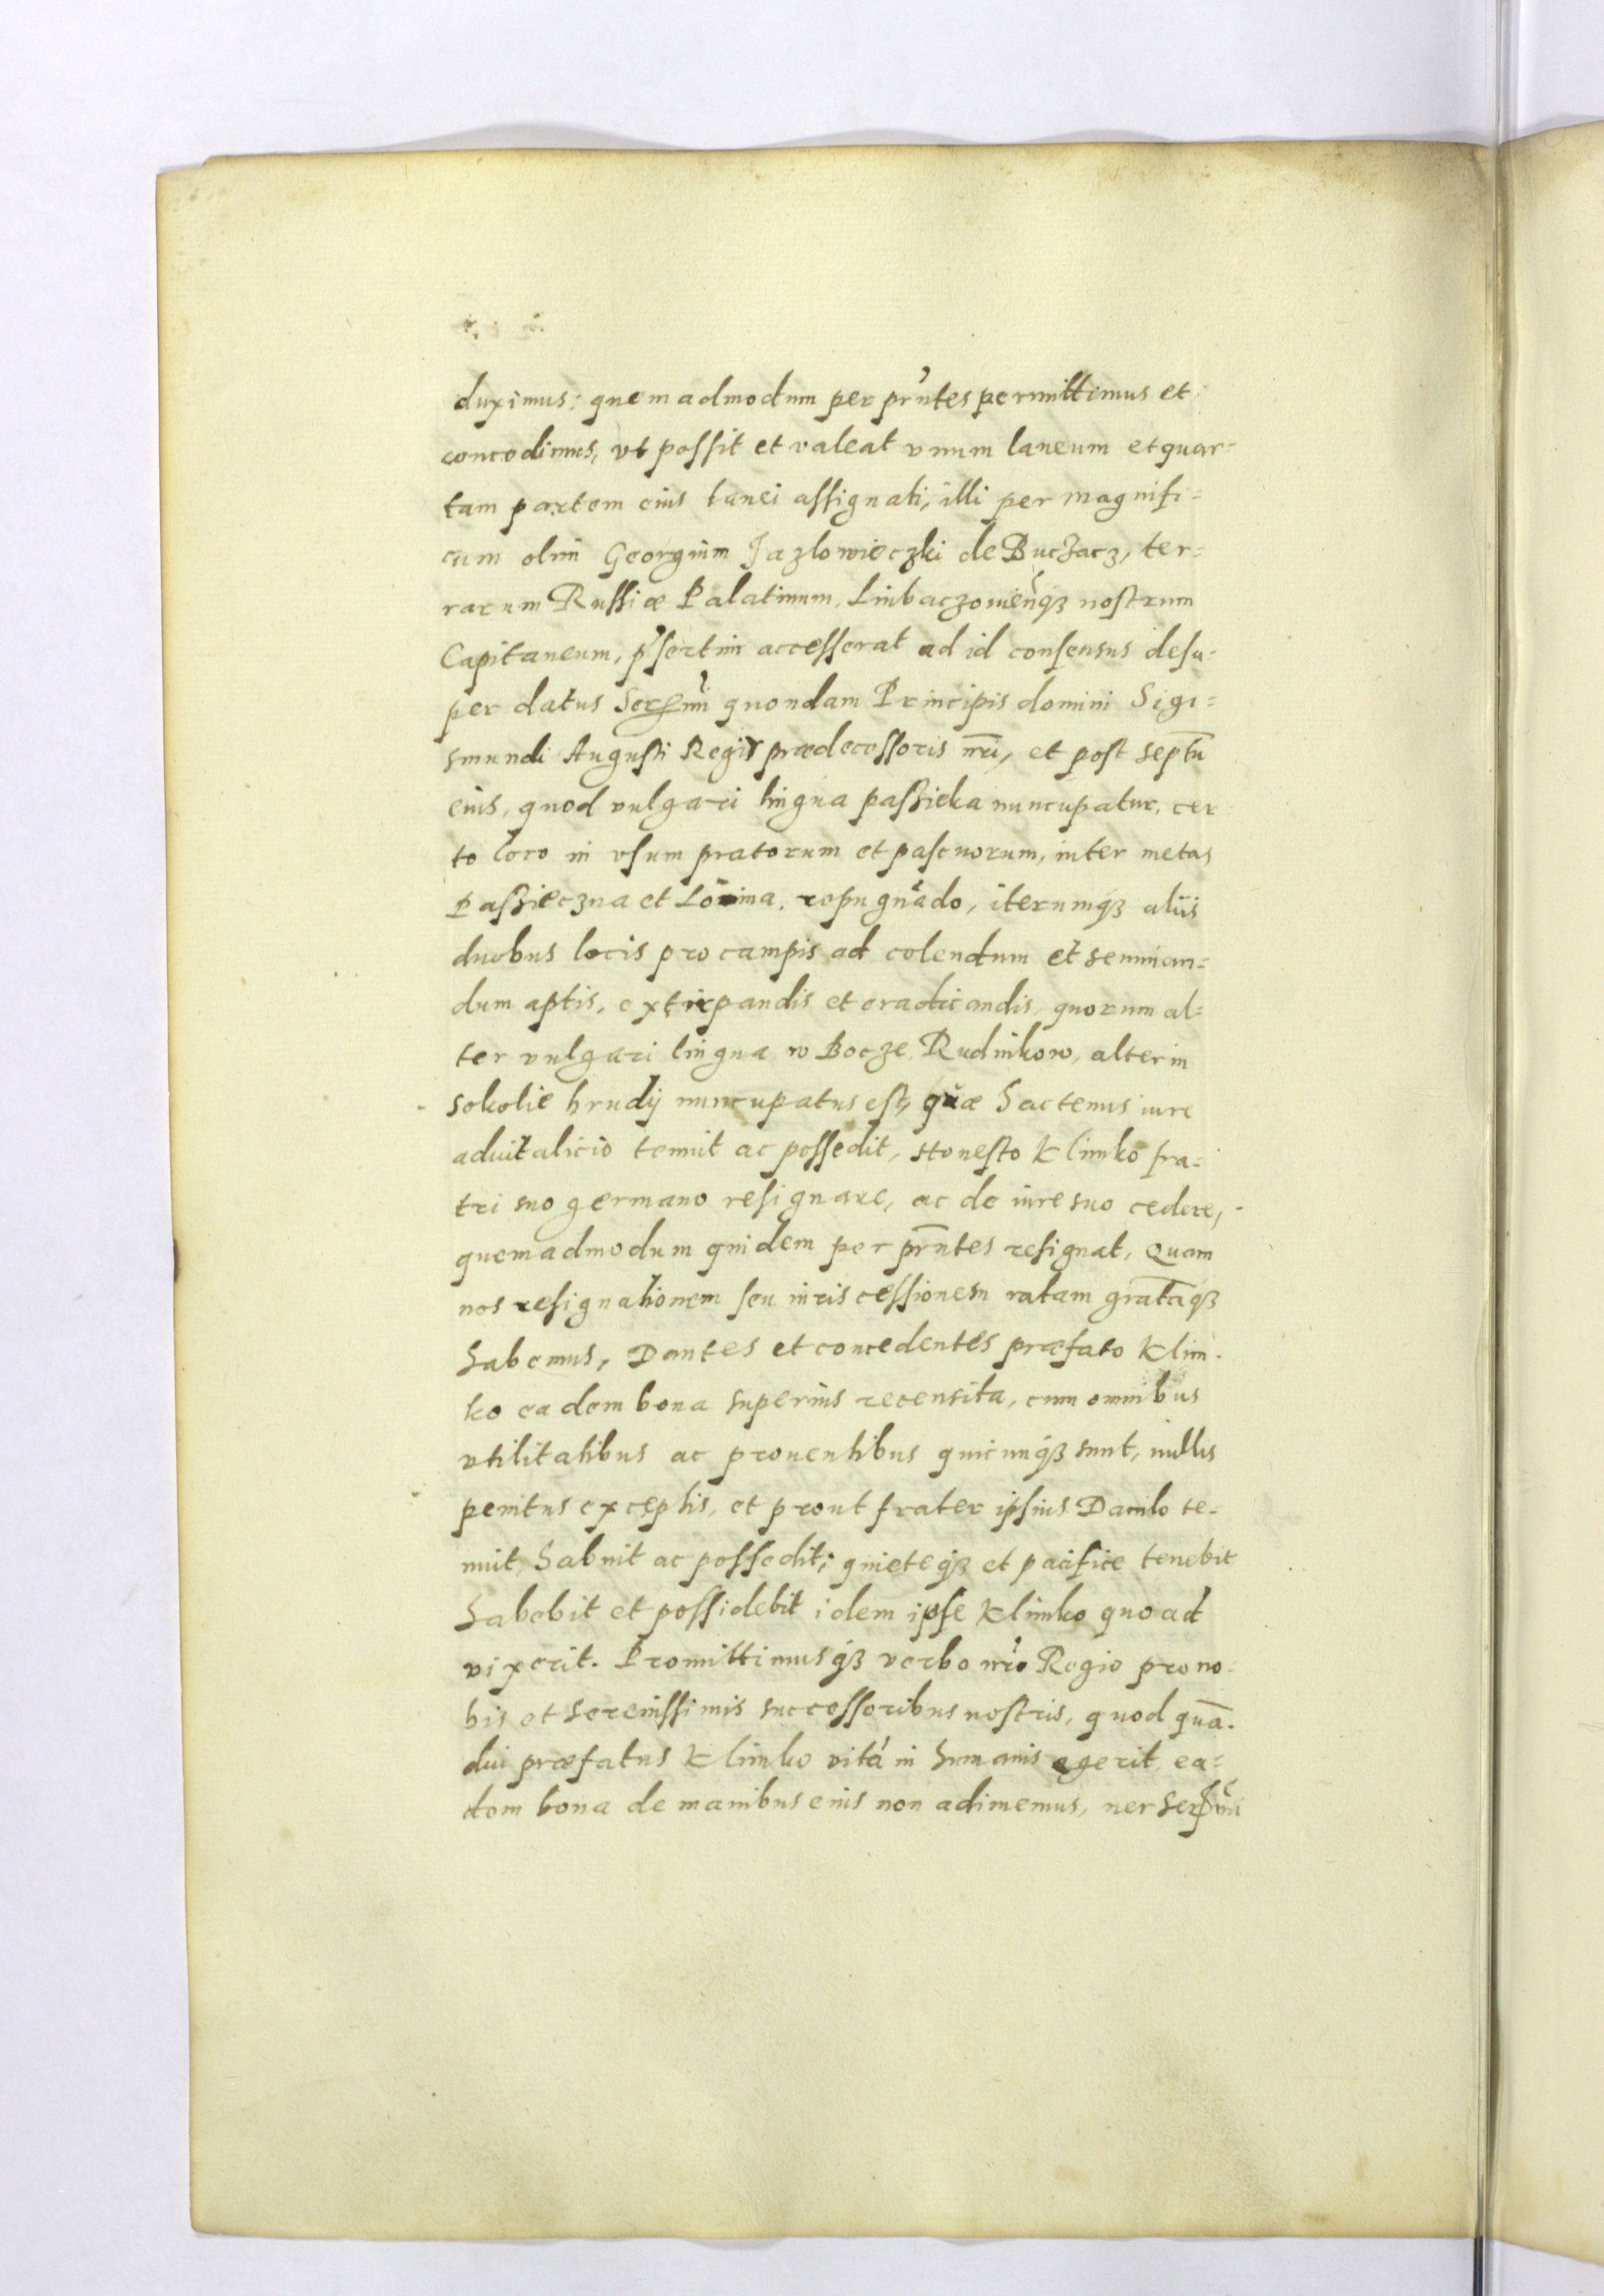 duximus: quemadmodum per prn̄tes permittimus et
concedimus, vt possit et valeat vnum laneum et quar=
tam partem eius lanei assignati, illi per magnifi=
cum olim Georgium Jazlowieczki de Buczacz, ter=
rarum Russiæ Palatinum, Liubaczowien̄q3 nostrum
Capitaneum, p̄sertim accesserat ad id consensus desu=
per datus Serssmi quondam Principis domini Sigi=
smundi Augusti Regis prædecessoris nr̄i, et post septū
eius, quod vulgari lingua passieka nuncupatur, cer
to loco in vsum pratorum et pascuorum, inter metas
Passieczna et repugnādo, iterumq3 aliis
duobus locis pro campis ad colendum et seminan=
dum aptis, extirpandis et eradicandis, quorum al=
ter vulgari lingua w Bocze Rudnikow, alter in
sokolie hrudij nuncupatus est, quæ hactenus iure
aduitalicio tenuit ac possedit, Honesto Klimko fra=
tri suo germano resignare, ac de iure suo cedere,
quemadmodum quidem per prn̄tes resignat, Quam
nos resignationem seu iuris cessionem ratam gratāq3
habemus, Dantes et concedentes præfato Klim.
ko eadem bona superius recensita, cum omnibus
vtilitatibus ac prouentibus quicunq3 sunt, nullis
penitus exceptis, et prout frater ipsius Danilo te=
nuit, habuit ac possedit; quieteq3 et pacifice tenebit
habebit et possidebit idem ipse Klimko quoad
vixerit. Promittimusq3 verbo nr̄o Regio pro no=
bis et serenissimis successoribus nostris, quod quā.
diu præfatus Klimko vitā in humanis egerit ea=
dem bona de manibus eius non adimemus, nec serssmi